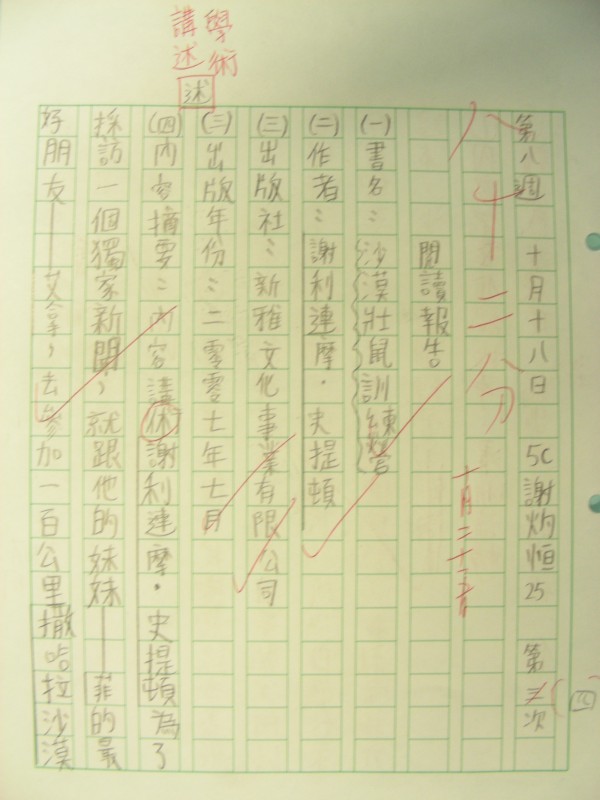 學術
講述
述
第八週 十月十八日 5C 謝灼恒 25 第三次
(四)
八十二分
十月二十五日
閱讀報告
(一)書名：沙漠壯鼠訓練營
(二)作者：謝利連摩・史提頓
(三)出版社：新雅文化事業有限公司
(三)出版年份：二零零七年七月
(四)內容摘要：內容講術謝利連摩・史提頓為了
採訪一個獨家新聞，就跟他的妹妹——菲的最
好朋友——艾拿，去參加一百公里撒哈拉沙漠